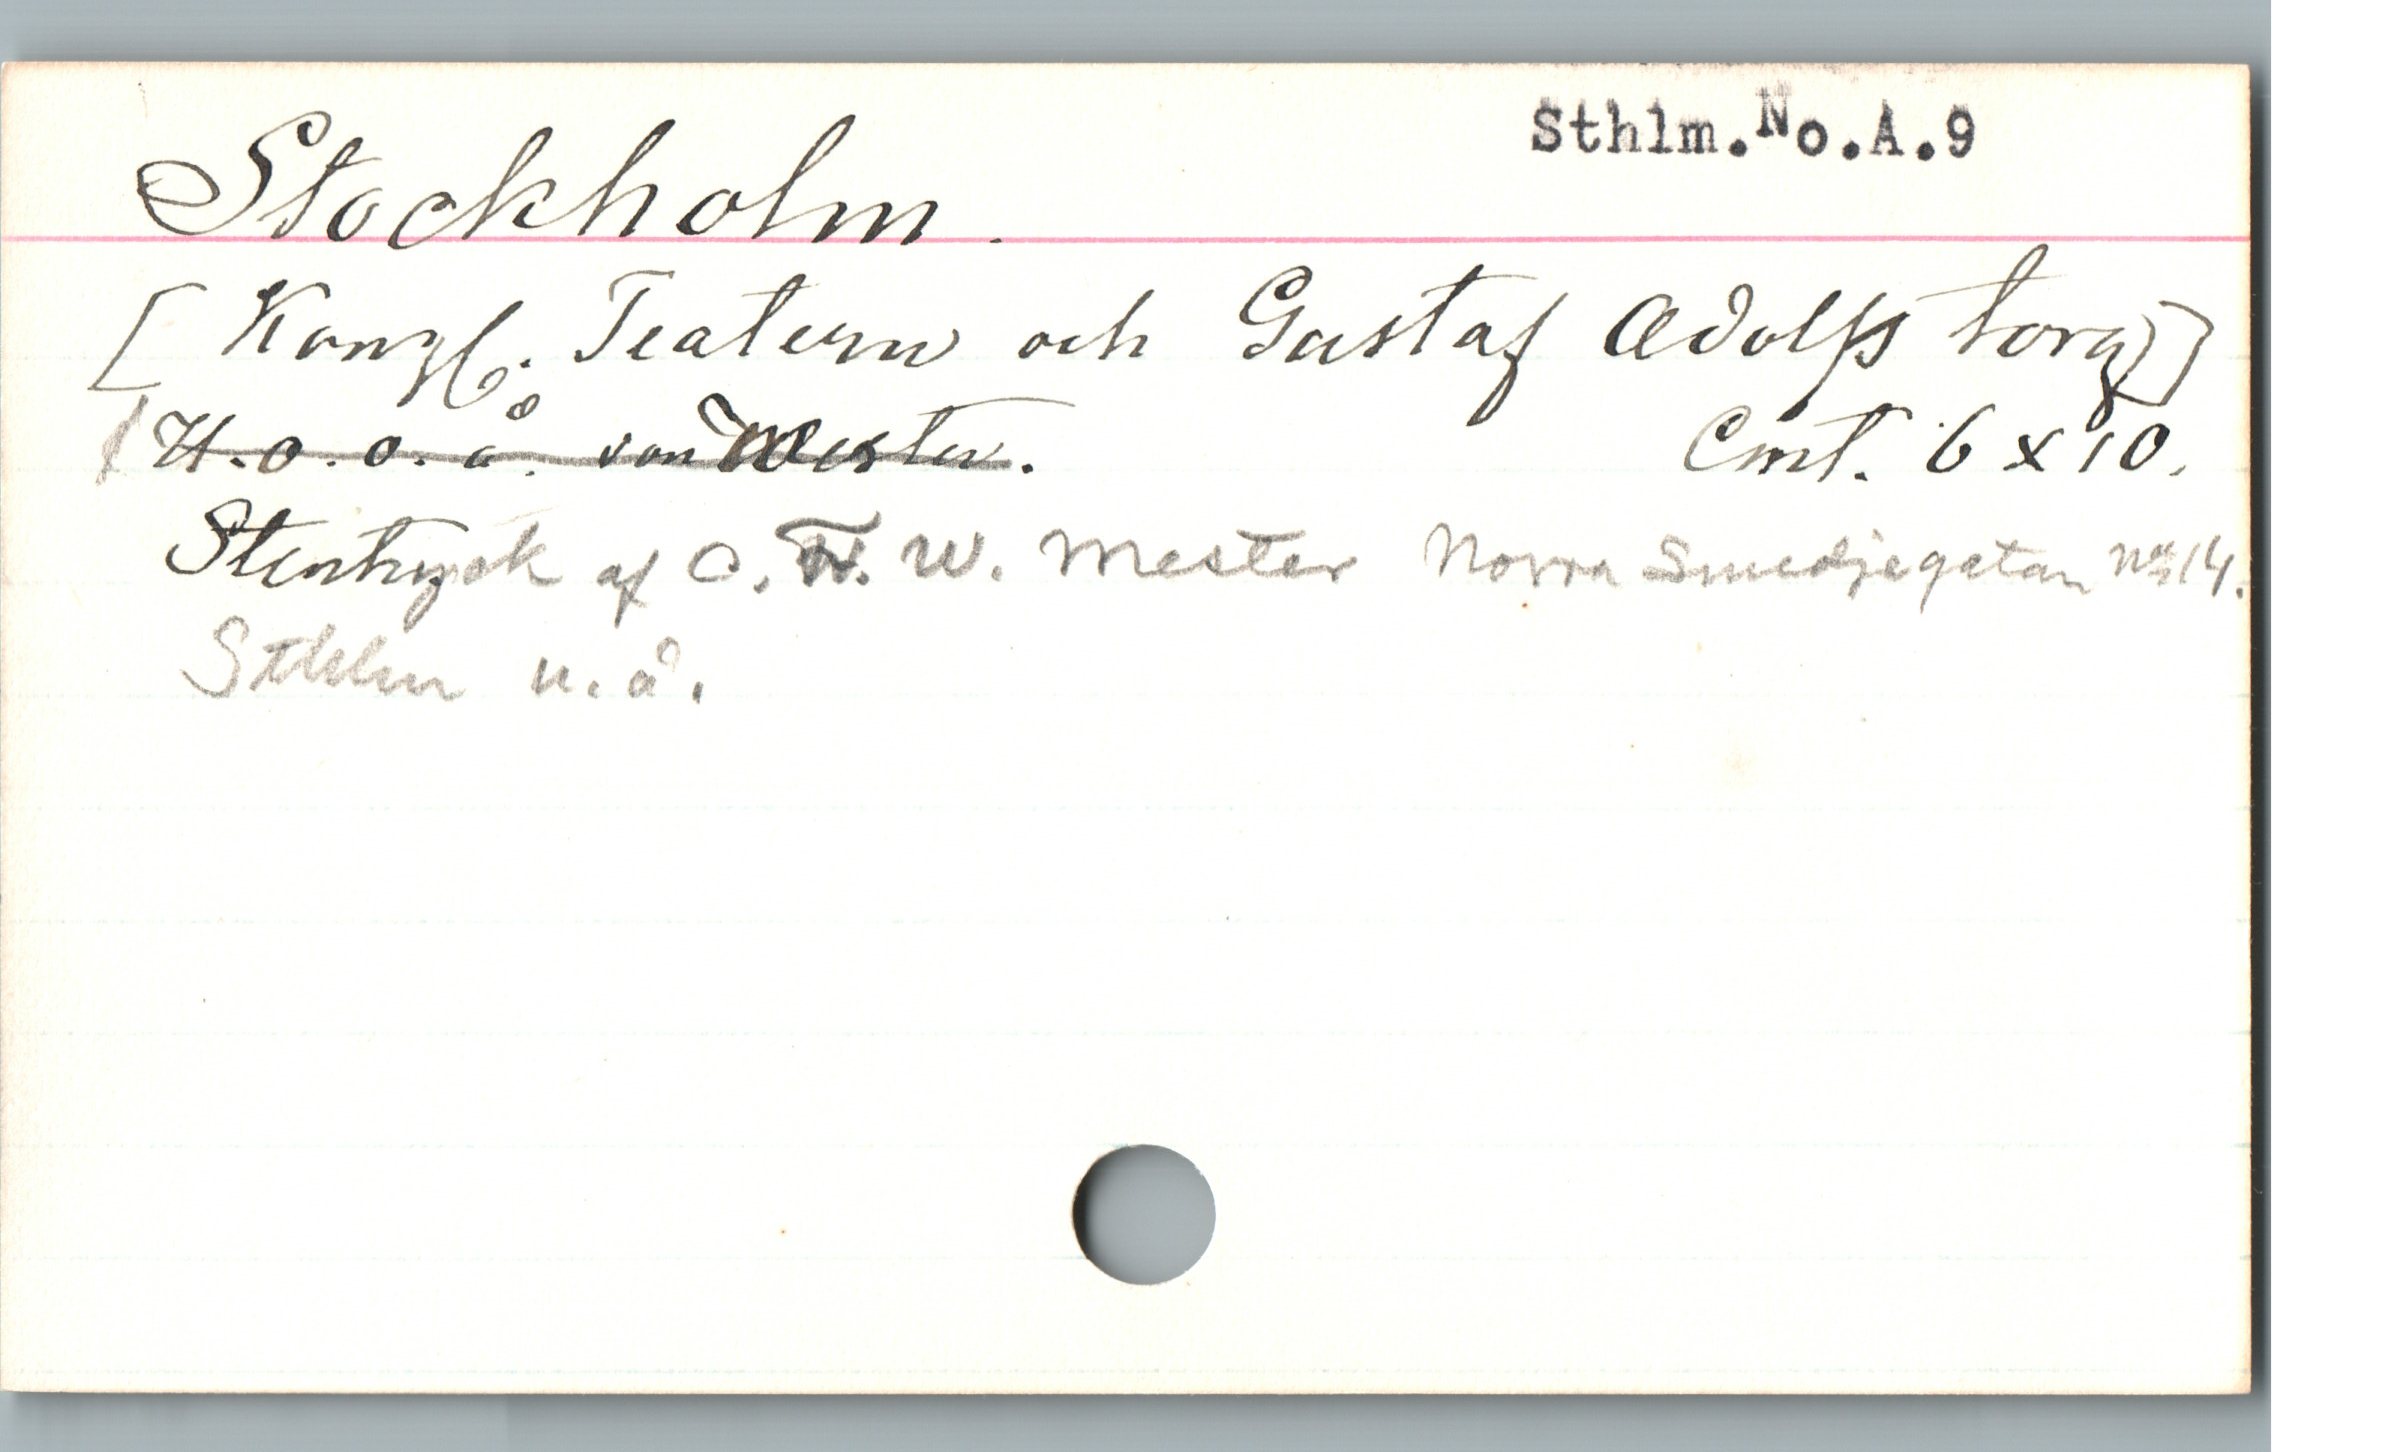 Sthlm.No.A.9
Stockholm.
[Kongl. Teatern och Gustaf Adolfs torg]
H.o.o.å. von Mester. Cmt. 6 x 10.
Stentryck af O. W. Mester Norra Smedjegatan No 14.
Sthlm u.å.